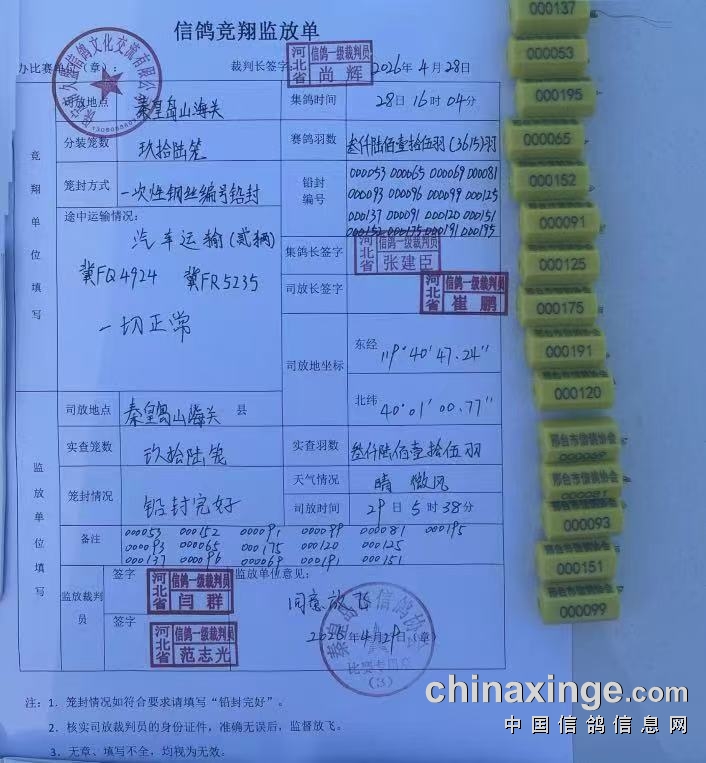 信鸽竞翔监放单
办比赛单位（章）：
裁判长签字
河北省 信鸽一级裁判员 尚辉
2026年4月28日
信鸽文化交流有限公司
竞翔单位填写
司放地点 秦皇岛山海关 集鸽时间 28日16时04分
分装笼数 玖拾陆笼 赛鸽羽数 叁仟陆佰壹拾伍羽(3615)羽
笼封方式 一次性钢丝编号铅封 铅封编号
000053 000065 000069 000081
000093 000096 000099 000125
000137 000091 000120 000151
000152 000175 000191 000195
途中运输情况：
汽车运输(贰辆)
冀FQ4924 冀FR5235
一切正常
集鸽长签字 河北省 信鸽一级裁判员 张建臣
司放长签字 河北省 信鸽一级裁判员 崔鹏
司放地坐标
东经 119°40'47.24"
北纬 40°01'00.77"
监放单位填写
司放地点 秦皇岛山海关 县
实查笼数 玖拾陆笼 实查羽数 叁仟陆佰壹拾伍羽
笼封情况 铅封完好 天气情况 晴 微风
司放时间 29日5时38分
备注
000053 000152 000091 000099 000081 000195
000093 000065 000175 000120 000125
000137 000096 000069 000191 000151
监放裁判员
签字 河北省 信鸽一级裁判员 闫群
签字 河北省 信鸽一级裁判员 范志光
监放单位意见：
同意放飞
2026年4月29日（章）
秦皇岛市信鸽协会
比赛专用章
(3)
注：1. 笼封情况如符合要求请填写“铅封完好”。
2. 核实司放裁判员的身份证件，准确无误后，监督放飞。
3. 无章、填写不全，均视为无效。
000137
000053
000195
000065
000152
000091
000125
000175
000191
000120
邢台市信鸽协会
000069
邢台市信鸽协会
000081
000093
邢台市信鸽协会
000151
000099
chinaxinge.com
中国信鸽信息网